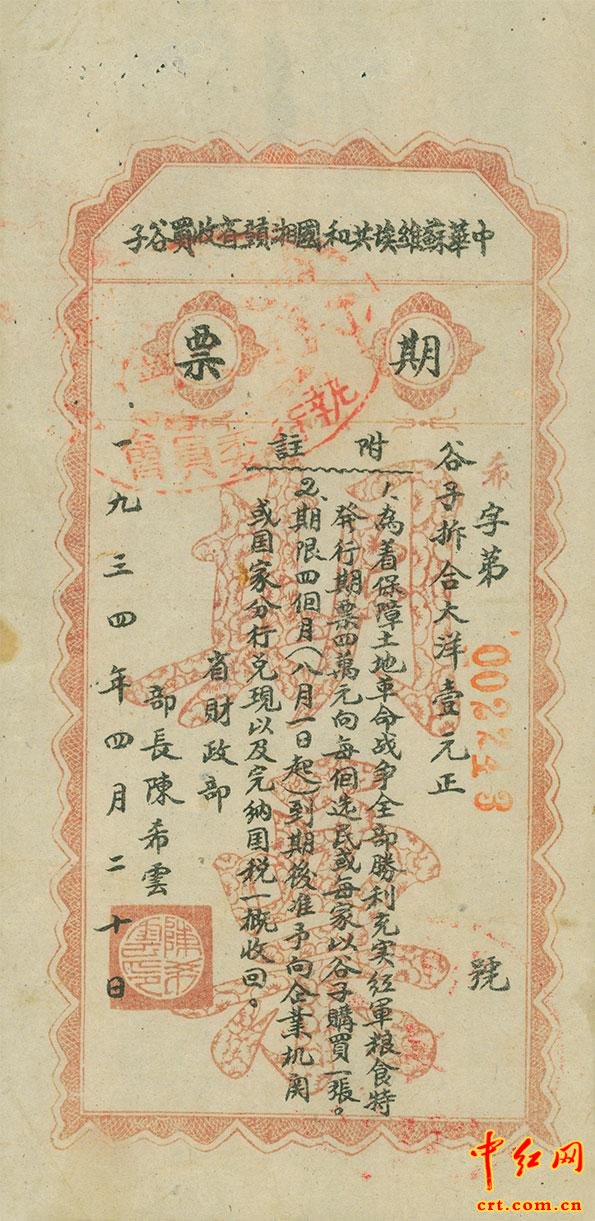 中華蘇維埃共和國湘贛省收買谷子
期票
赤字第002743號
谷子折合大洋壹元正
附註
1、為着保障土地革命战争全部勝利充实红軍粮食特
發行期票四萬元向每個选民或每家以谷子購買一張。
2、期限四個月(八月一日起)到期後准予向企業机関
或国家分行兑現以及完纳国税一概收回。
省財政部
部長陳希雲
一九三四年四月二十日
執行委員會
陳希雲印
中红网
crt.com.cn